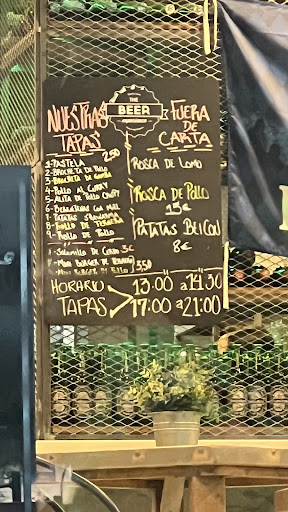 THE
BEER
NUESTRAS
TAPAS
2,50
1-PASTELA
2-BROCHETA DE POLLO
3-BROCHETA DE GAMBA
4-POLLO AL CURRY
5-ALITA DE POLLO CRISPY
6-BERENJENAS CON MIEL
7-PATATAS
8-ROLLO DE TERNERA
9-ROLLO DE POLLO
1-SOLOMILLO DE CERDO 3€
2-MINI BURGER DE TERNERA
MINI BURGER DE POLLO 3,50
FUERA
DE
CARTA
ROSCA DE LOMO
ROSCA DE POLLO
15€
PATATAS BEICON
8€
HORARIO
TAPAS
13:00 a 14:30
17:00 a 21:00